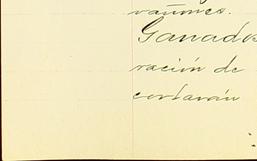 vañones.
Ganados
ración de
cortarán